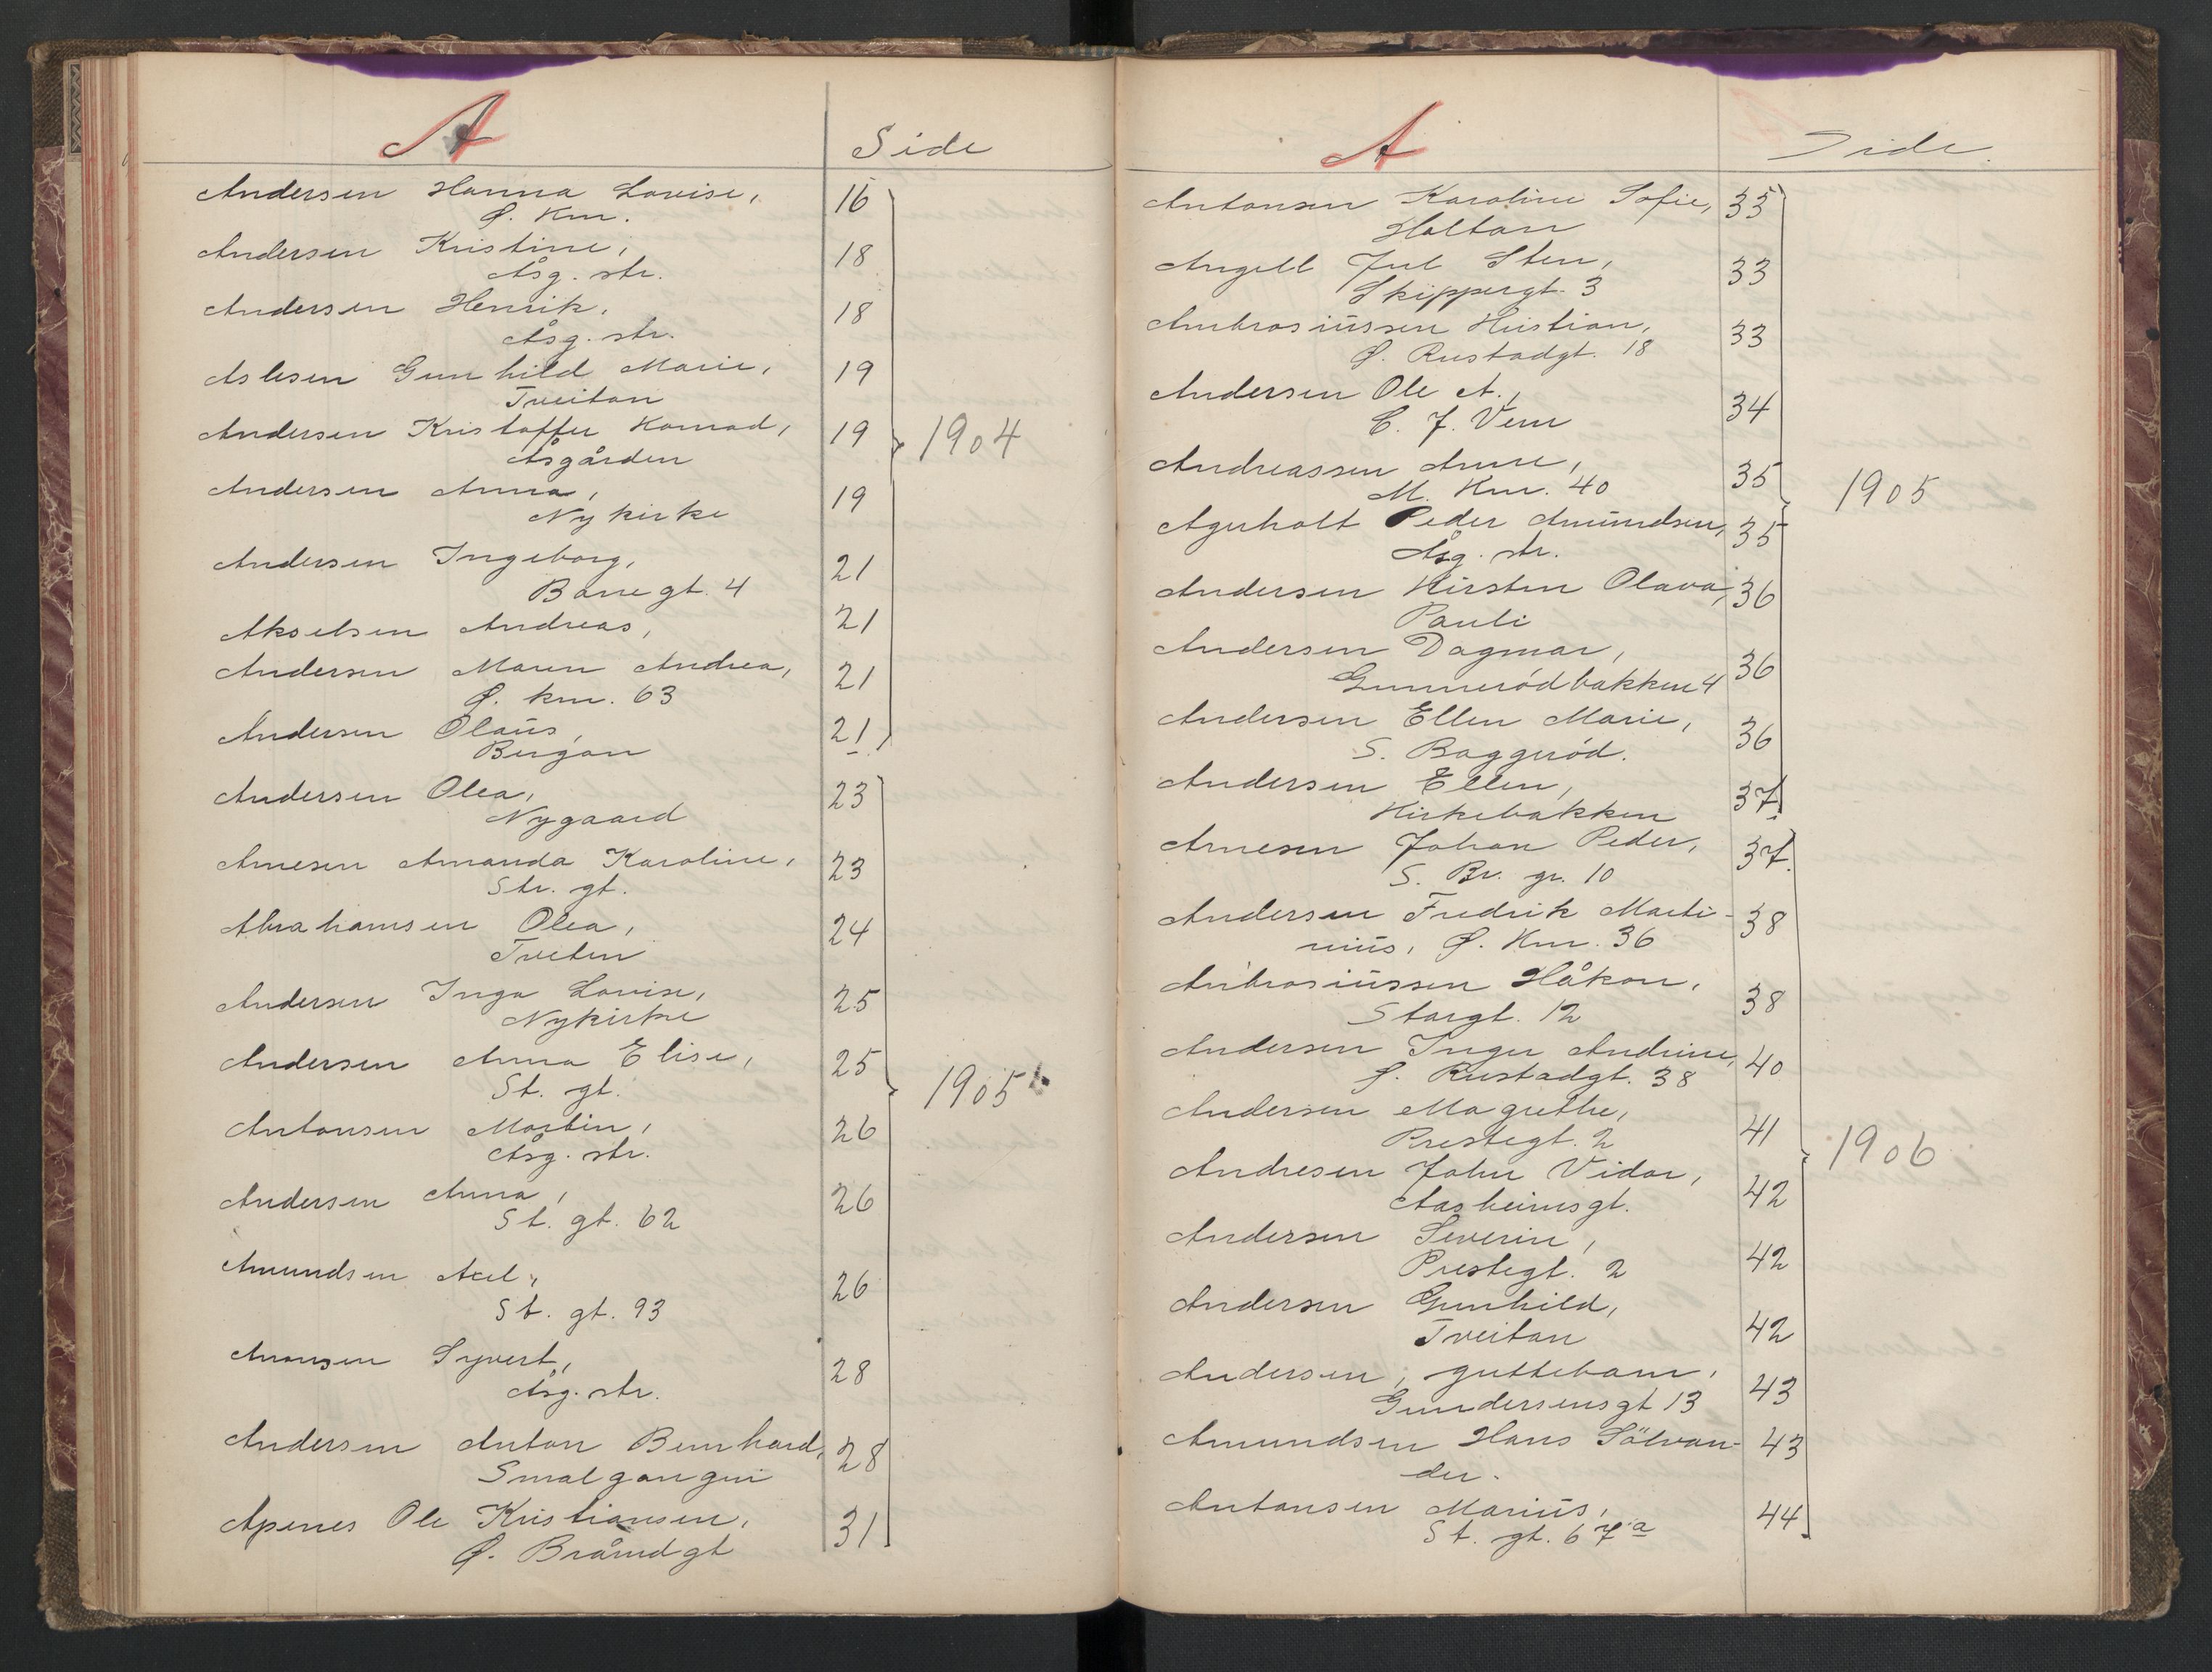 A Side
Andersen Hanna Lovise, 16
Ø. Km.
Andersen Kristine, 18
Åsg. str.
Andersen Henrik, 18
Åsg. str.
Aslesen Gunhild Marie, 19
Tveitan
Andersen Kristoffer Konrad, 19
Åsgården
1904
Andersen Anna, 19
Nykirke
Andersen Ingeborg, 21
Banegt. 4
Akselsen Andreas, 21
Andersen Maren Andrea, 21
Ø. km. 63
Andersen Olaus, 21
Bergan
Andersen Olea, 23
Nygaard
Arnesen Amanda Karoline, 23
Str. gt.
Abrahamsen Olea, 24
Tveten
Andersen Inga Lovise, 25
Nykirke
Andersen Anna Elise, 25
St. gt.
1905
Antonsen Martin, 26
Åsg. str.
Andersen Anna, 26
St. gt. 62
Amundsen Axel, 26
St. gt. 93
Aronsen Syvert, 28
Åsg. str.
Andersen Anton Bernhard, 28
Smalgangen
Apenes Ole Kristiansen, 31
Ø. Bråndgt
A Side
Antonsen Karoline Sofie, 33
Holtan
Angell Jul Sten, 33
Skippergt. 3
Ambrosiussen Kristian, 33
Ø. Rustadgt. 18
Andersen Ole A., 34
C. J. Vem
Andreassen Anne, 35
M. Km. 40
1905
Agerholt Peder Amundsen, 35
Åsg. str.
Andersen Kirsten Olava, 36
Pauli
Andersen Dagmar, 36
Gunnerødbakken 4
Andersen Ellen Marie, 36
S. Baggerød.
Andersen Ellen, 37
Kirkebakken
Arnesen Johan Peder, 37
S. Br. gr. 10
Andersen Fredrik Marti- 38
nius, Ø. Km. 36
Ambrosiussen Håkon, 38
Storgt. 12
Andersen Inger Andrine, 40
Ø. Rustadgt. 38
Andersen Magrethe, 41
Prestegt. 2
1906
Andresen John Vidar, 42
Aasheimsgt.
Andersen Severin, 42
Prestegt. 2
Andersen Gunhild, 42
Tveitan
Andersen, guttebarn, 43
Gundersensgt 13
Amundsen Hans Sölvan- 43
der.
Antonsen Marius, 44
St. gt. 67a